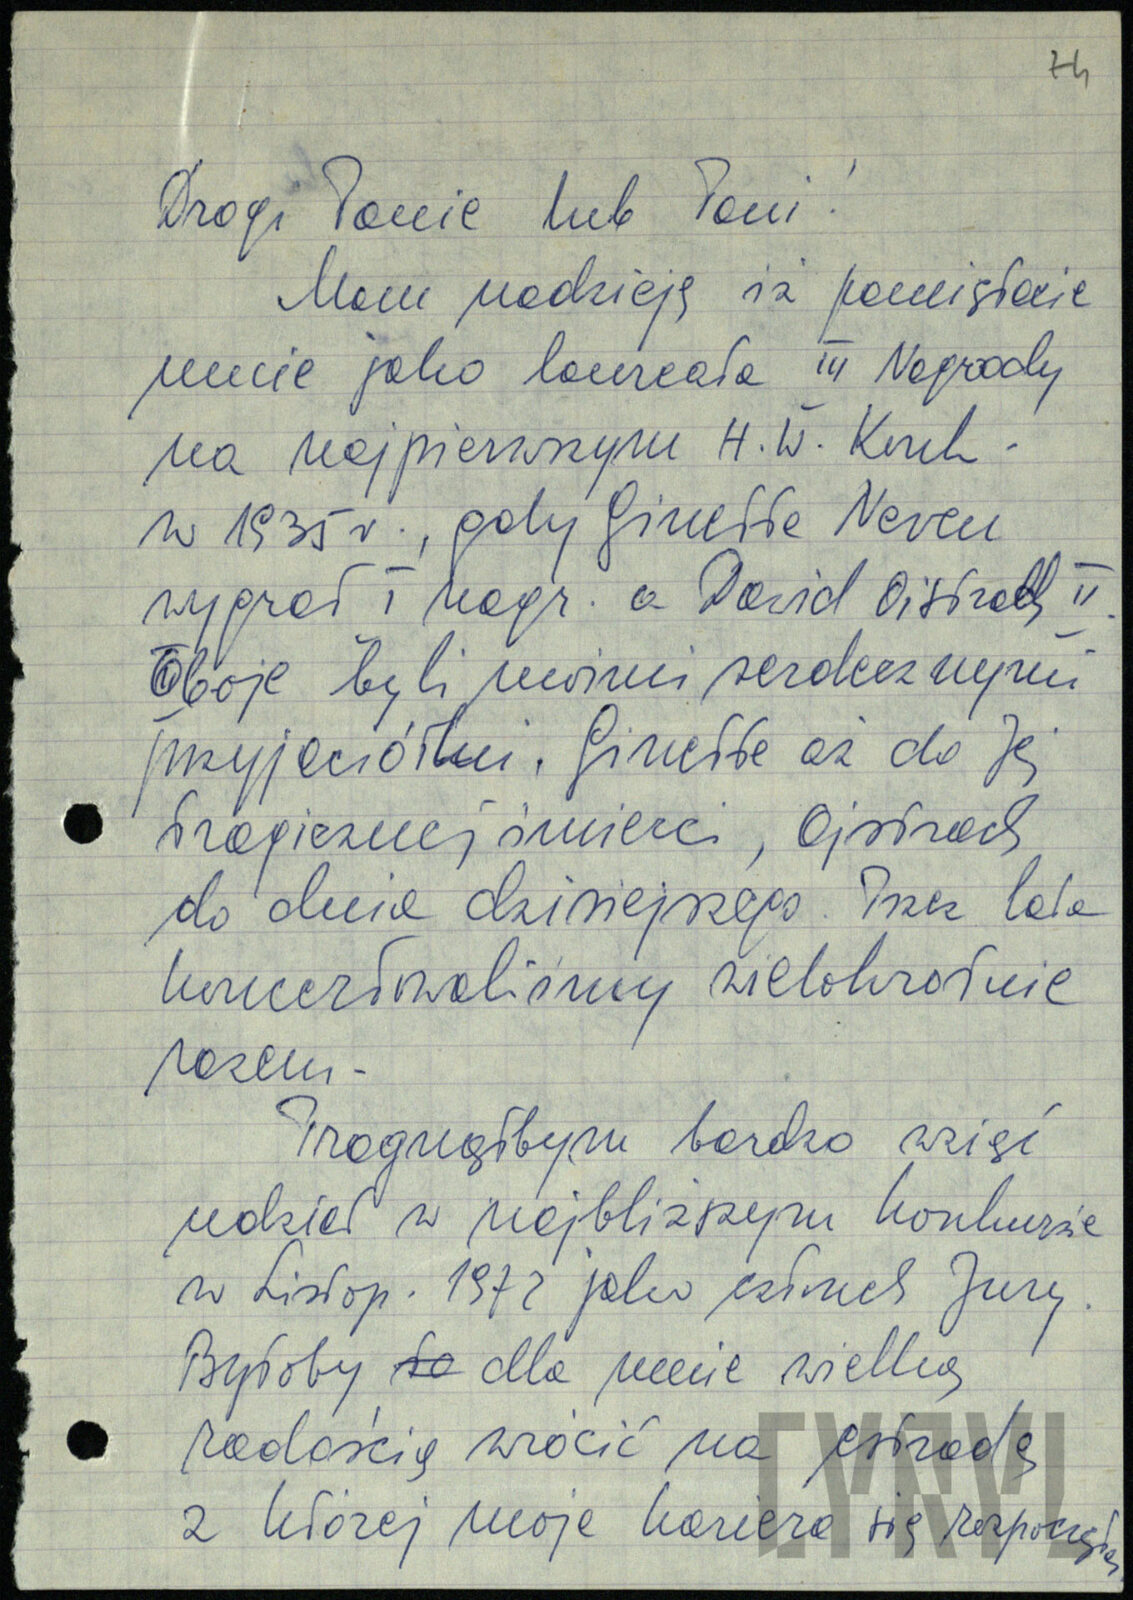 74
Drogi Panie lub Pani!
Mam nadzieję iż pamiętacie
mnie jako laureata III Nagrody
na najpierwszym H.W. Konk-
w 1935 r., gdy Ginette Neveu
wygrał I nagr. a Dawid Oistrach II.
Oboje byli moimi serdecznymi
przyjaciółmi. Ginette aż do Jej
tragicznej śmierci, Ojstrach
do dnia dzisiejszego. Przez lata
koncertowaliśmy wielokrotnie
razem-
Pragnąłbym bardzo wziąć
udział w najbliższym konkursie
w Listop. 1972 jako członek Jury.
Byłoby to dla mnie wielką
radością wrócić na estradę
z której moje kariera się rozpoczęła
CYRYL